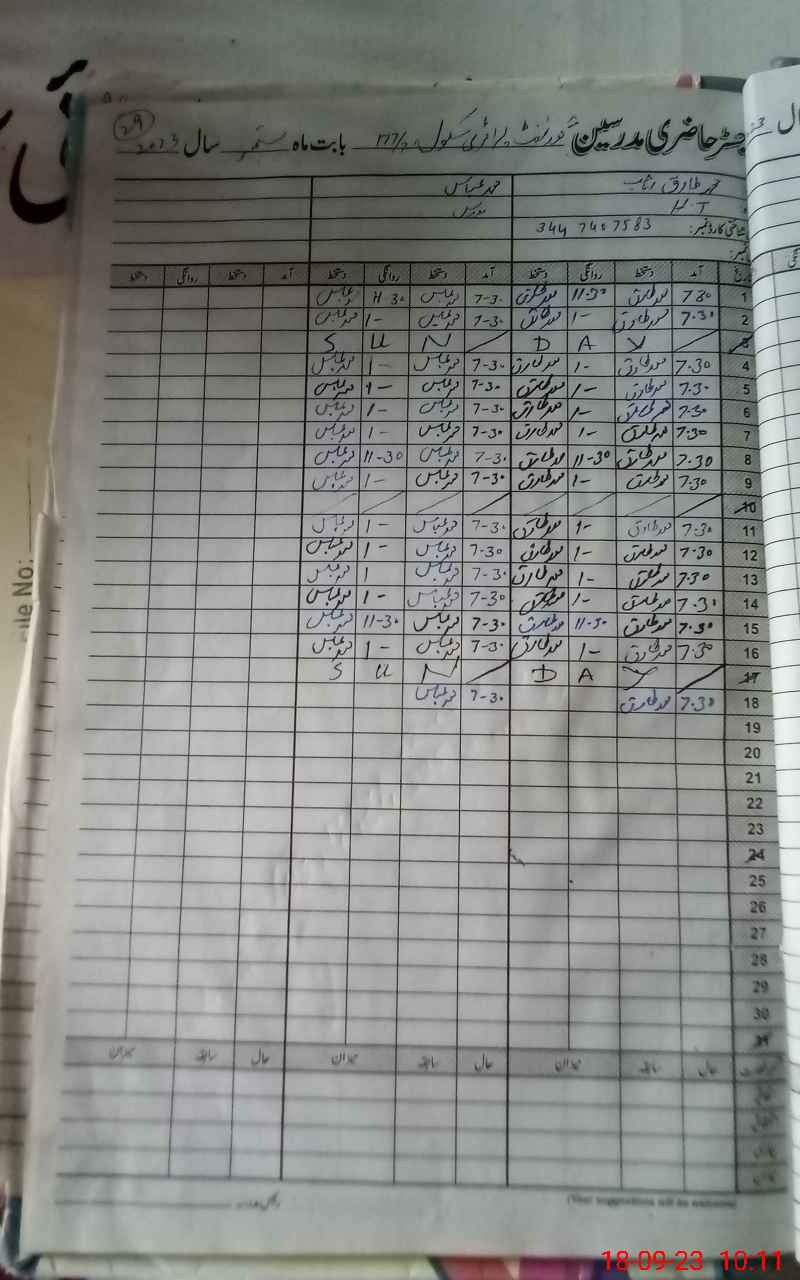 29
رجسٹر حاضری مدرسین گورنمنٹ پرائمری سکول بابت ماہ ستمبر سال 2023
محمد طارق محمد عباس
H.T مدرس
شناختی کارڈ نمبر: 344 7407583
تاریخ آمد دستخط روانگی دستخط آمد دستخط روانگی دستخط آمد دستخط روانگی دستخط
1 7.30 محمد طارق 11.30 محمد طارق 7-30 محمد عباس 11-30 محمد عباس
2 7.30 محمد طارق 1- محمد طارق 7-30 محمد عباس 1- محمد عباس
3 S U N D A Y
4 7.30 محمد طارق 1- محمد طارق 7-30 محمد عباس 1- محمد عباس
5 7.30 محمد طارق 1- محمد طارق 7-30 محمد عباس 1- محمد عباس
6 7.30 محمد طارق 1- محمد طارق 7-30 محمد عباس 1- محمد عباس
7 7.30 محمد طارق 1- محمد طارق 7-30 محمد عباس 1- محمد عباس
8 7.30 محمد طارق 11-30 محمد طارق 7-30 محمد عباس 11-30 محمد عباس
9 7.30 محمد طارق 1- محمد طارق 7-30 محمد عباس 1- محمد عباس
10
11 7.30 محمد طارق 1- محمد طارق 7-30 محمد عباس 1- محمد عباس
12 7.30 محمد طارق 1- محمد طارق 7-30 محمد عباس 1- محمد عباس
13 7.30 محمد طارق 1- محمد طارق 7-30 محمد عباس 1 محمد عباس
14 7.30 محمد طارق 1- محمد طارق 7-30 محمد عباس 1- محمد عباس
15 7.30 محمد طارق 11-30 محمد طارق 7-30 محمد عباس 11-30 محمد عباس
16 7.30 محمد طارق 1- محمد طارق 7-30 محمد عباس 1- محمد عباس
17 S U N D A Y
18 7.30 محمد طارق 7-30 محمد عباس
19
20
21
22
23
24
25
26
27
28
29
30
31
حال سابقہ میزان حال سابقہ میزان حال سابقہ میزان
(Your suggestions will be welcome)
File No:
18-09-23 10:11